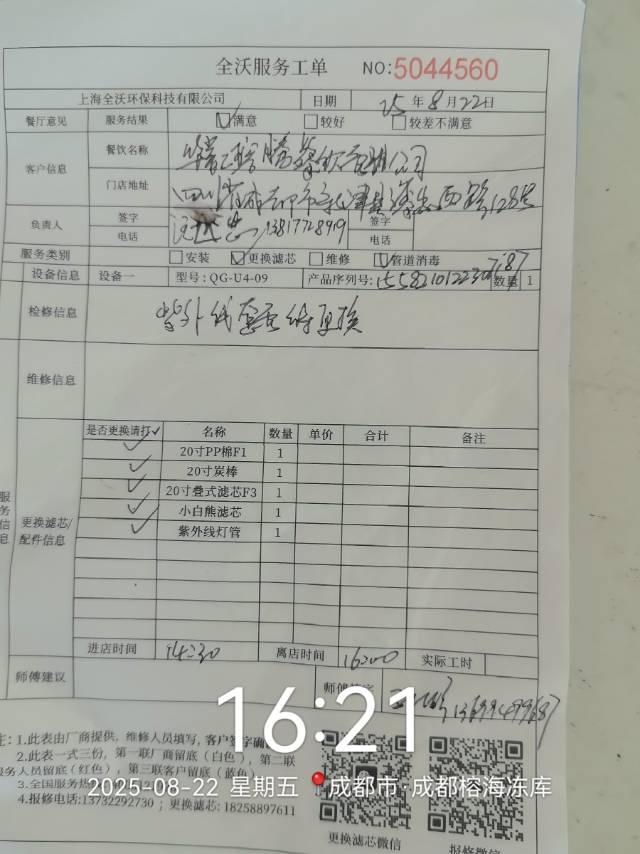 全沃服务工单 NO:5044560
上海全沃环保科技有限公司 日期 25年8月22日
餐厅意见 服务结果 满意 较好 较差不满意
客户信息 餐饮名称
门店地址
负责人 签字 签字
电话 13817728919 电话
服务类别 安装 更换滤芯 维修 管道消毒
设备信息 设备一 型号:QG-U4-09 产品序列号: 数量 1
检修信息 紫外线 更换
维修信息
是否更换请打✓ 名称 数量 单价 合计 备注
✓ 20寸PP棉F1 1
✓ 20寸炭棒 1
✓ 20寸叠式滤芯F3 1
✓ 小白熊滤芯 1
✓ 紫外线灯管 1
服务信息
更换滤芯/
配件信息
进店时间 14:30 离店时间 16:00 实际工时
师傅建议 师傅签字
16:21
注:1.此表由厂商提供，维修人员填写，客户签字确
2.此表一式三份，第一联厂商留底(白色)，第二联
服务人员留底(红色)，第三联客户留底(蓝色)
3.全国服务热
2025-08-22 星期五 成都市·成都榕海冻库
4.报修电话:13732292730；更换滤芯:18258897611
更换滤芯微信 报修微信